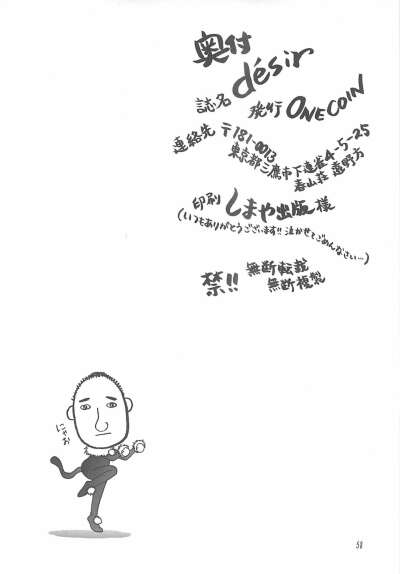 奥付
誌名 désir
発行 ONECOIN
連絡先 〒181-0013
東京都三鷹市下連雀4-5-25
春山荘 遠野方
印刷 しまや出版 様
(いつもありがとうございます!! 泣かせてごめんなさい…)
禁!! 無断転載
無断複製
にゃお
58